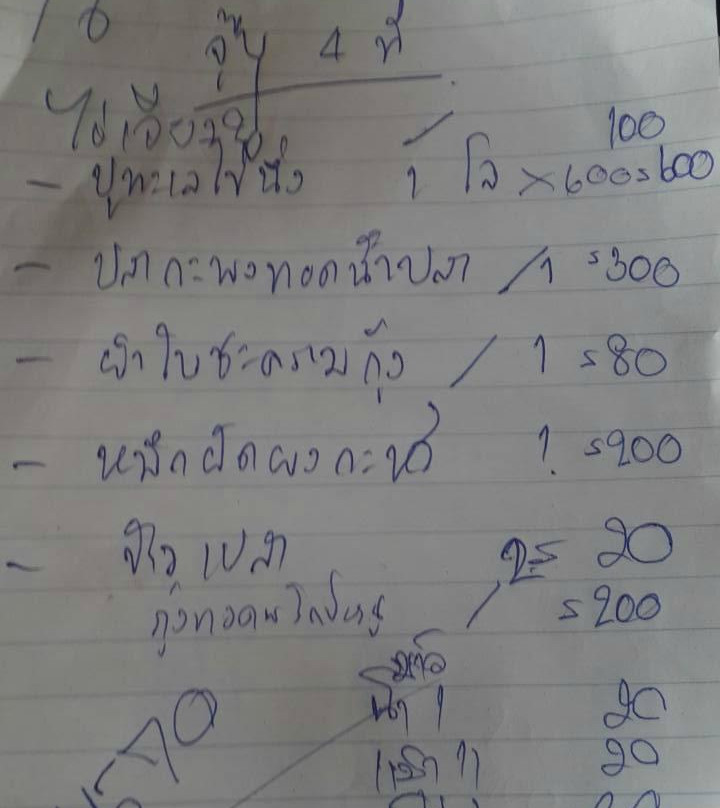 จุ๊บ 4 ที่
ไข่เจียวปู / 100
- ปูทะเลไข่นึ่ง 1 โล × 600 = 600
- ปลากะพงทอดน้ำปลา / 1 = 300
- ยำใบชะครามกุ้ง / 1 = 80
- หมึกผัดผงกะหรี่ 1 = 200
- ข้าวเปล่า 20
กุ้งทอด / = 200
น้ำ 1 20
20